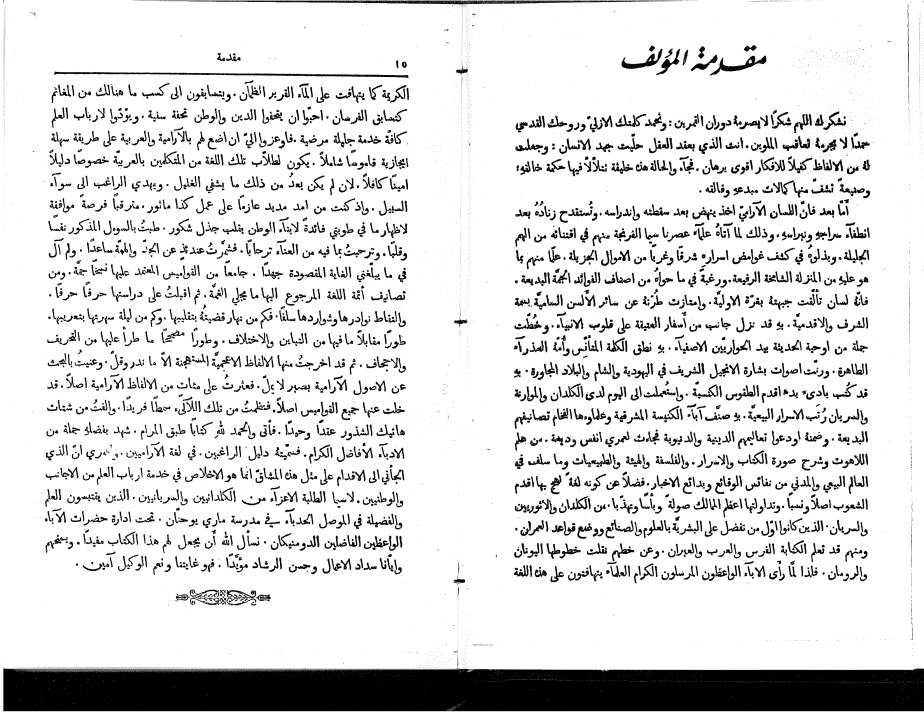 مقدمة المؤلف
نشكرك اللهم شكرًا لا يصرمهُ دوران القمرين. ونحمد كلمتك الازليّ وروحك القدسي
حمدًا لا يجرمهُ تعاقب الملوين. انت الذي بعقد العقل حلّيت جيد الانسان: وجعلت
لهُ من الالفاظ كفيلًا للافكار اقوى برهان. فجآء والحالة هذه خليقة تتلألأ فيها حكمة خالقهِ؛
وصنيعةً تشفّ منها كمالات مبدعهِ وفالقهِ.
أمّا بعد فانّ اللسان الآراميّ اخذ ينهض بعد سقطتهِ واندراسهِ. وتُستقدح زنادهُ بعد
انطفآء سراجهِ ونبراسهِ. وذلك لما آتاهُ علمآء عصرنا سيما الفرنجة منهم في اقتنائهِ من الهمم
الجليلة. وبذلوهُ في كشف غوامض اسرارهِ شرقًا وغربًا من الاموال الجزيلة. علمًا منهم بما
هو عليهِ من المنزلة الشامخة الرفيعة. ورغبةً في ما حواهُ من اصناف الفوائد الجمّة البديعة.
فانّهُ لسان تألّقت جبهتهُ بغرّة الاوليّة. وامتازت طرّتهُ عن سائر الألسن الساميّة بسمة
الشرف والاقدميّة. بهِ قد نزل جانب من أسفار العتيقة على قلوب الانبيآء. وخُطّت
جملة من اوحية الحديثة بيد الحواريّين الاصفيآء. بهِ نطق الكلمة المتأنّس وأمّهُ العذرآء
الطاهرة. ورنّت اصوات بشارة الانجيل الشريف في اليهودية والشام والبلاد المجاورة. بهِ
قد كُتب بادىء بدء اقدم الطقوس الكنسيّة. واستُعملت الى اليوم لدى الكلدان والموارنة
والسريان رُتَب الاسرار البيعيّة. بهِ صنّف آبآء الكنيسة المشرقية وعلماؤها الفخام تصانيفهم
البديعة. وضمنهُ اودعوا تعاليمهم الدينية والدنيوية فجاءت لعمري انفس وديعة. من علم
اللاهوت وشرح صورة الكتاب والاسرار. والفلسفة والهيئة والطبيعيات وما سلف في
العالم البيعي والمدني من نفائس الوقائع وبدائع الاخبار. فضلًا عن كونهِ لغة لهج بها اقدم
الشعوب اصلًا ونسبًا. وتداولتها اعظم الممالك صولةً وبأسًا وتهذّبًا. من الكلدان والاثوريين
والسريان. الذين كانوا اوّل من تفضل على البشريّة بالعلوم والصنائع ووضع قواعد العمران.
ومنهم قد تعلم الكتابة الفرس والعرب والعبران. وعن خطهم نقلت خطوطها اليونان
والرومان. فلذا لمّا رأى الابآء الواعظون المرسلون الكرام العلمآء يتهافتون على هذه اللغة
مقدمة ١٥
الكريمة كما يتهافت على المآء القرير الظمآن. ويتسابقون الى كسب ما هنالك من المغانم
كتسابق الفرسان. احبّوا ان يتحفوا الدين والوطن تحفة سنية. ويؤدّوا لارباب العلم
كافّة خدمة جليلة مرضية. فاوعزوا اليّ ان اضع لهم بالآرامية والعربية على طريقة سهلة
ايجازية قاموسًا شاملًا. يكون لطلّاب تلك اللغة من المتكلمين بالعربية خصوصًا دليلًا
امينًا كافلًا. لان لم يكن بعدُ من ذلك ما يشفي الغليل. ويهدي الراغب الى سوآء
السبيل. واذ كنت من امد مديد عازمًا على عمل كذا ماثور. مترقبًا فرصةً موافقة
لاظهار ما في طويتي فائدةً لابنآء الوطن بقلب جذل شكور. طبتُ بالسول المذكور نفسًا
وقلبًا. وترحبتُ بما فيهِ من العنآء ترحابًا. فشمّرتُ عندئذٍ عن الجدّ والهمّة ساعدًا. ولم آل
في ما يبلّغني الغاية المقصودة جهدًا. جامعًا من القواميس المعتمد عليها نسخًا جمة. ومن
تصانيف أئمة اللغة المرجوع اليها ما يجلي الغمّة. ثم اقبلتُ على دراستها حرفًا حرفًا.
والتقاط نوادرها وشواردها سلفًا. فكم من نهار قضيتهُ بتقليبها. وكم من ليلة سهرتها بتعريبها.
طورًا مقابلًا ما فيها من التباين والاختلاف. وطورًا مصححًا ما طرأ عليها من التحريف
والاجحاف. ثم قد اخرجتُ منها الالفاظ الاعجميّة المستهجنة الّا ما ندر وقلّ. وعنيتُ بالبحث
عن الاصول الآرامية بصبر لا يملّ. فعثرتُ على مئات من الالفاظ الآرامية اصلًا. قد
خلت عنها جميع القواميس اصلًا. فنظمتُ من تلك اللآلئ سمطًا فريدًا. والفتُ من شتات
هاتيك الشذور عقدًا وحيدًا. فأتى والحمد لله كتابًا طبق المرام. شهد بفضلهِ جملة من
الادبآء الأفاضل الكرام. فسمّيتهُ دليل الراغبين. في لغة الآراميين. ولعمري انّ الذي
الجأني الى الاقدام على مثل هذه المشاقّ انما هو الاخلاص في خدمة ارباب العلم من الاجانب
والوطنيين. لاسيما الطلبة الاعزآء من الكلدانيين والسريانيين. الذين يقتبسون العلم
والفضيلة في الموصل الحدبآء في مدرسة ماري يوحنّان. تحت ادارة حضرات الآبآء
الواعظين الفاضلين الدومنيكان. نسأل الله أن يجعل لهم هذا الكتاب مفيدًا. ويمنحهم
وإيّانا سداد الاعمال وحسن الرشاد مؤبّدًا. فهو غايتنا ونعم الوكيل آمين.